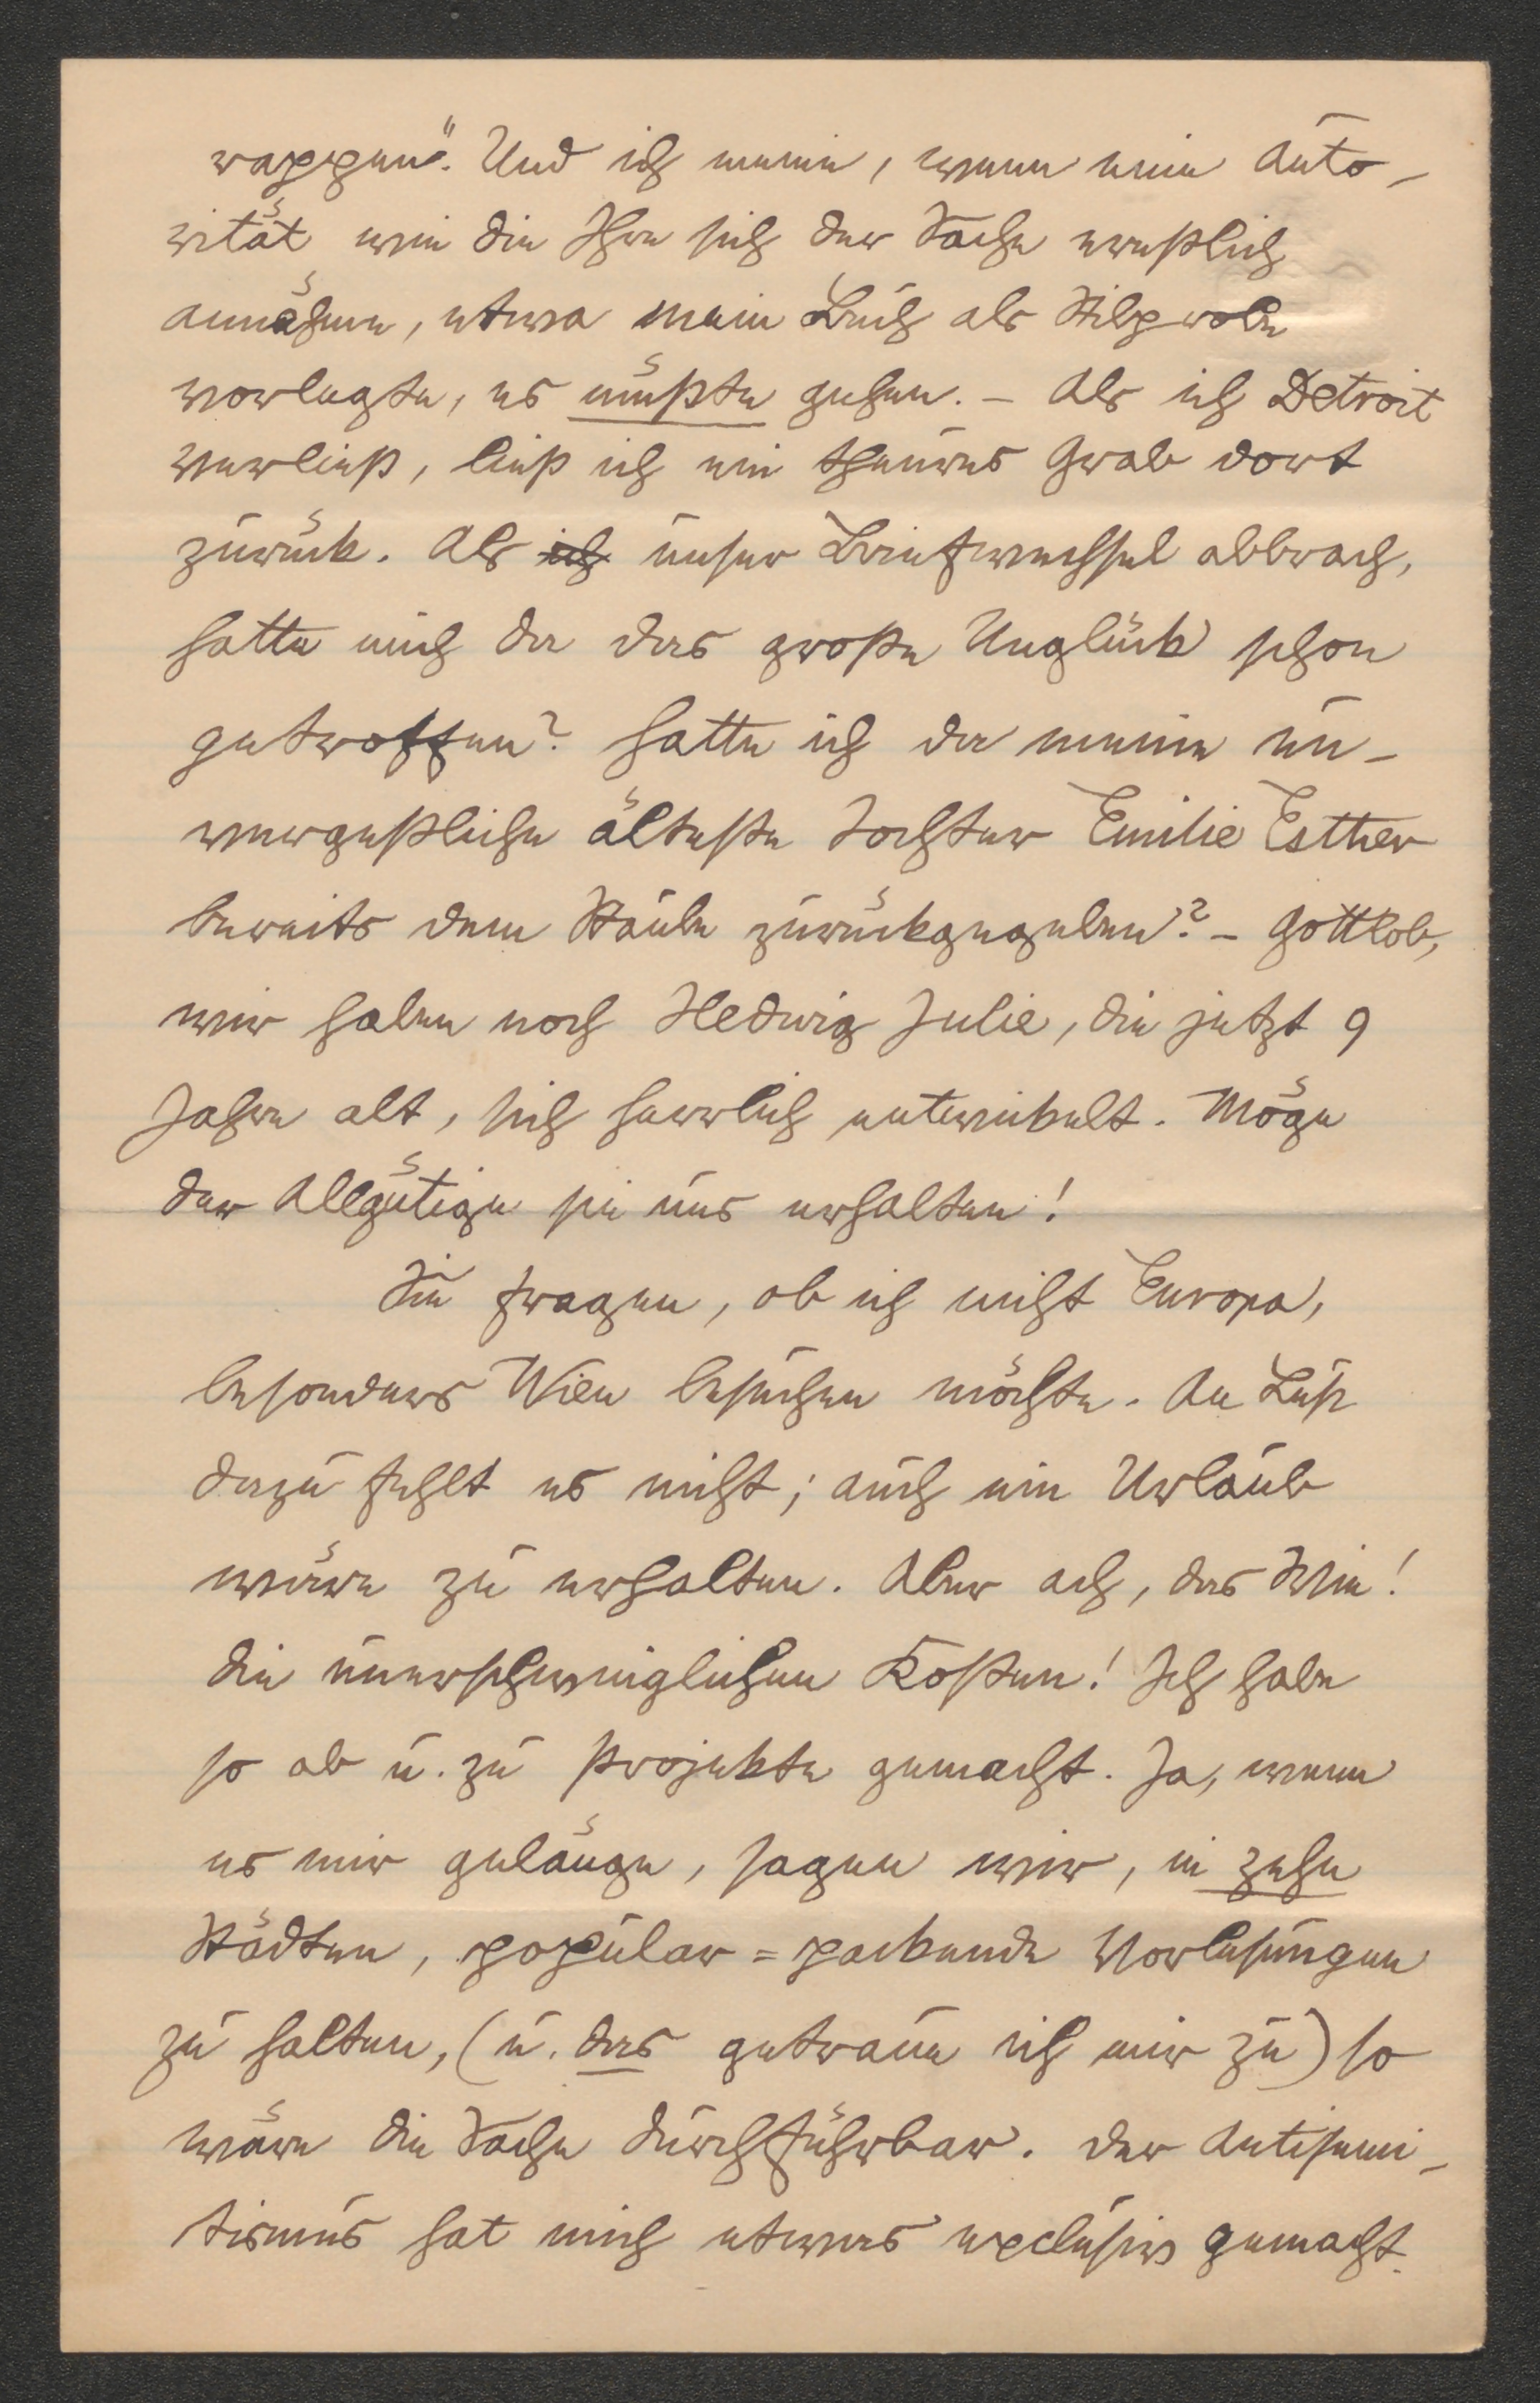 rappen". Und ich meine, wenn eine Auto-
rität wie die Ihre sich der Sache ernstlich
annähme, etwa mein Buch als Stilprobe
vorlegte, es müßte gehen. – Als ich Detroit
verließ, ließ ich ein theures Grab dort
zurück. Als ich unser Briefwechsel abbrach,
hatte mich da das große Unglück schon
getroffen? Hatte ich da meine un-
vergeßliche älteste Tochter Emilie Esther
bereits dem Staube zurückgegeben? – Gottlob,
wir haben noch Hedwig Julie, die jetzt 9
Jahre alt, sich herrlich entwickelt. Möge
der Allgütige sie uns erhalten!
Sie fragen, ob ich nicht Europa,
besonders Wien besuchen möchte. An Lust
dazu fehlt es nicht; auch ein Urlaub
wäre zu erhalten. Aber ach, das Wie!
die unerschwinglichen Kosten! Ich habe
so ab u. zu Projekte gemacht. Ja, wenn
es mir gelänge, sagen wir, in zehn
Städten, populär-packende Vorlesungen
zu halten, (u. das getraue ich mir zu) so
wäre die Sache durchführbar. Der Antisemi-
tismus hat mich etwas exclusiv gemacht.